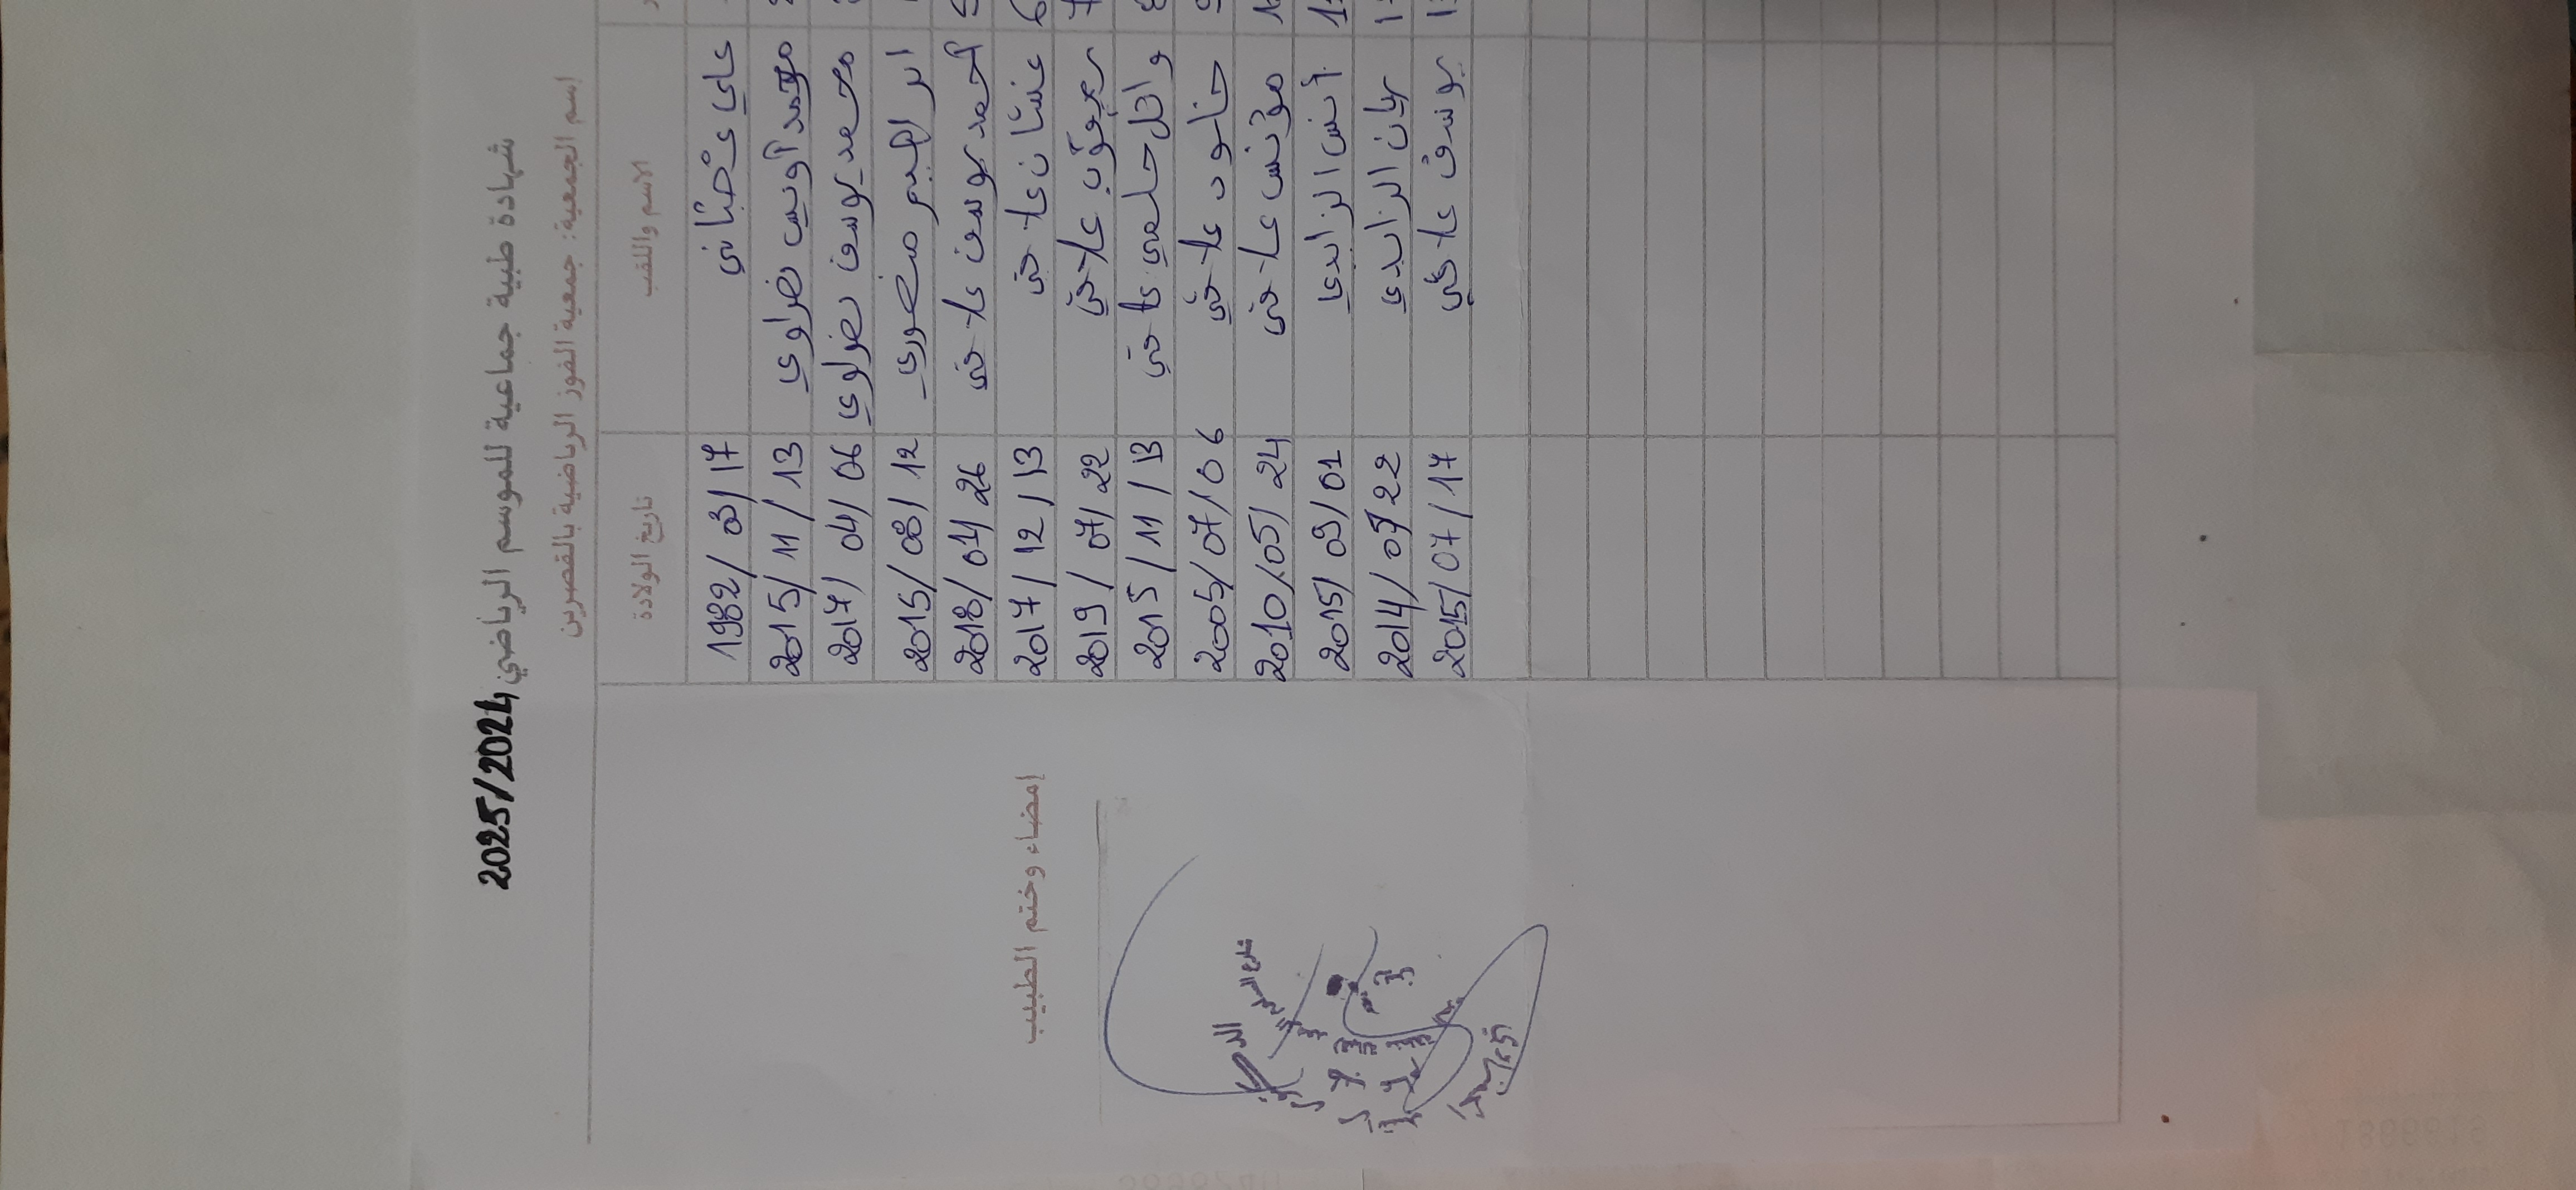 شهادة طبية جماعية للموسم الرياضي 2025/2024
إسم الجمعية: جمعية الفوز الرياضية بالقصرين
الاسم واللقب تاريخ الولادة
علي عصباني 1982/03/17
2 محمد أويس نضراوي 2015/11/13
3 محمد يوسف نضراوي 2017/04/06
ابراهيم منصوري 2015/08/12
5 محمد يوسف علاقي 2018/01/26
6 غسان علاقي 2017/12/13
7 يعقوب علاقي 2019/07/22
8 وائل حلمي علاقي 2015/11/13
9 علاقي 2005/07/06
مؤنس علاقي 2010/05/24
أنس الزايدي 2015/09/01
الزايدي 2014/07/22
يوسف علاقي 2015/07/17
إمضاء وختم الطبيب